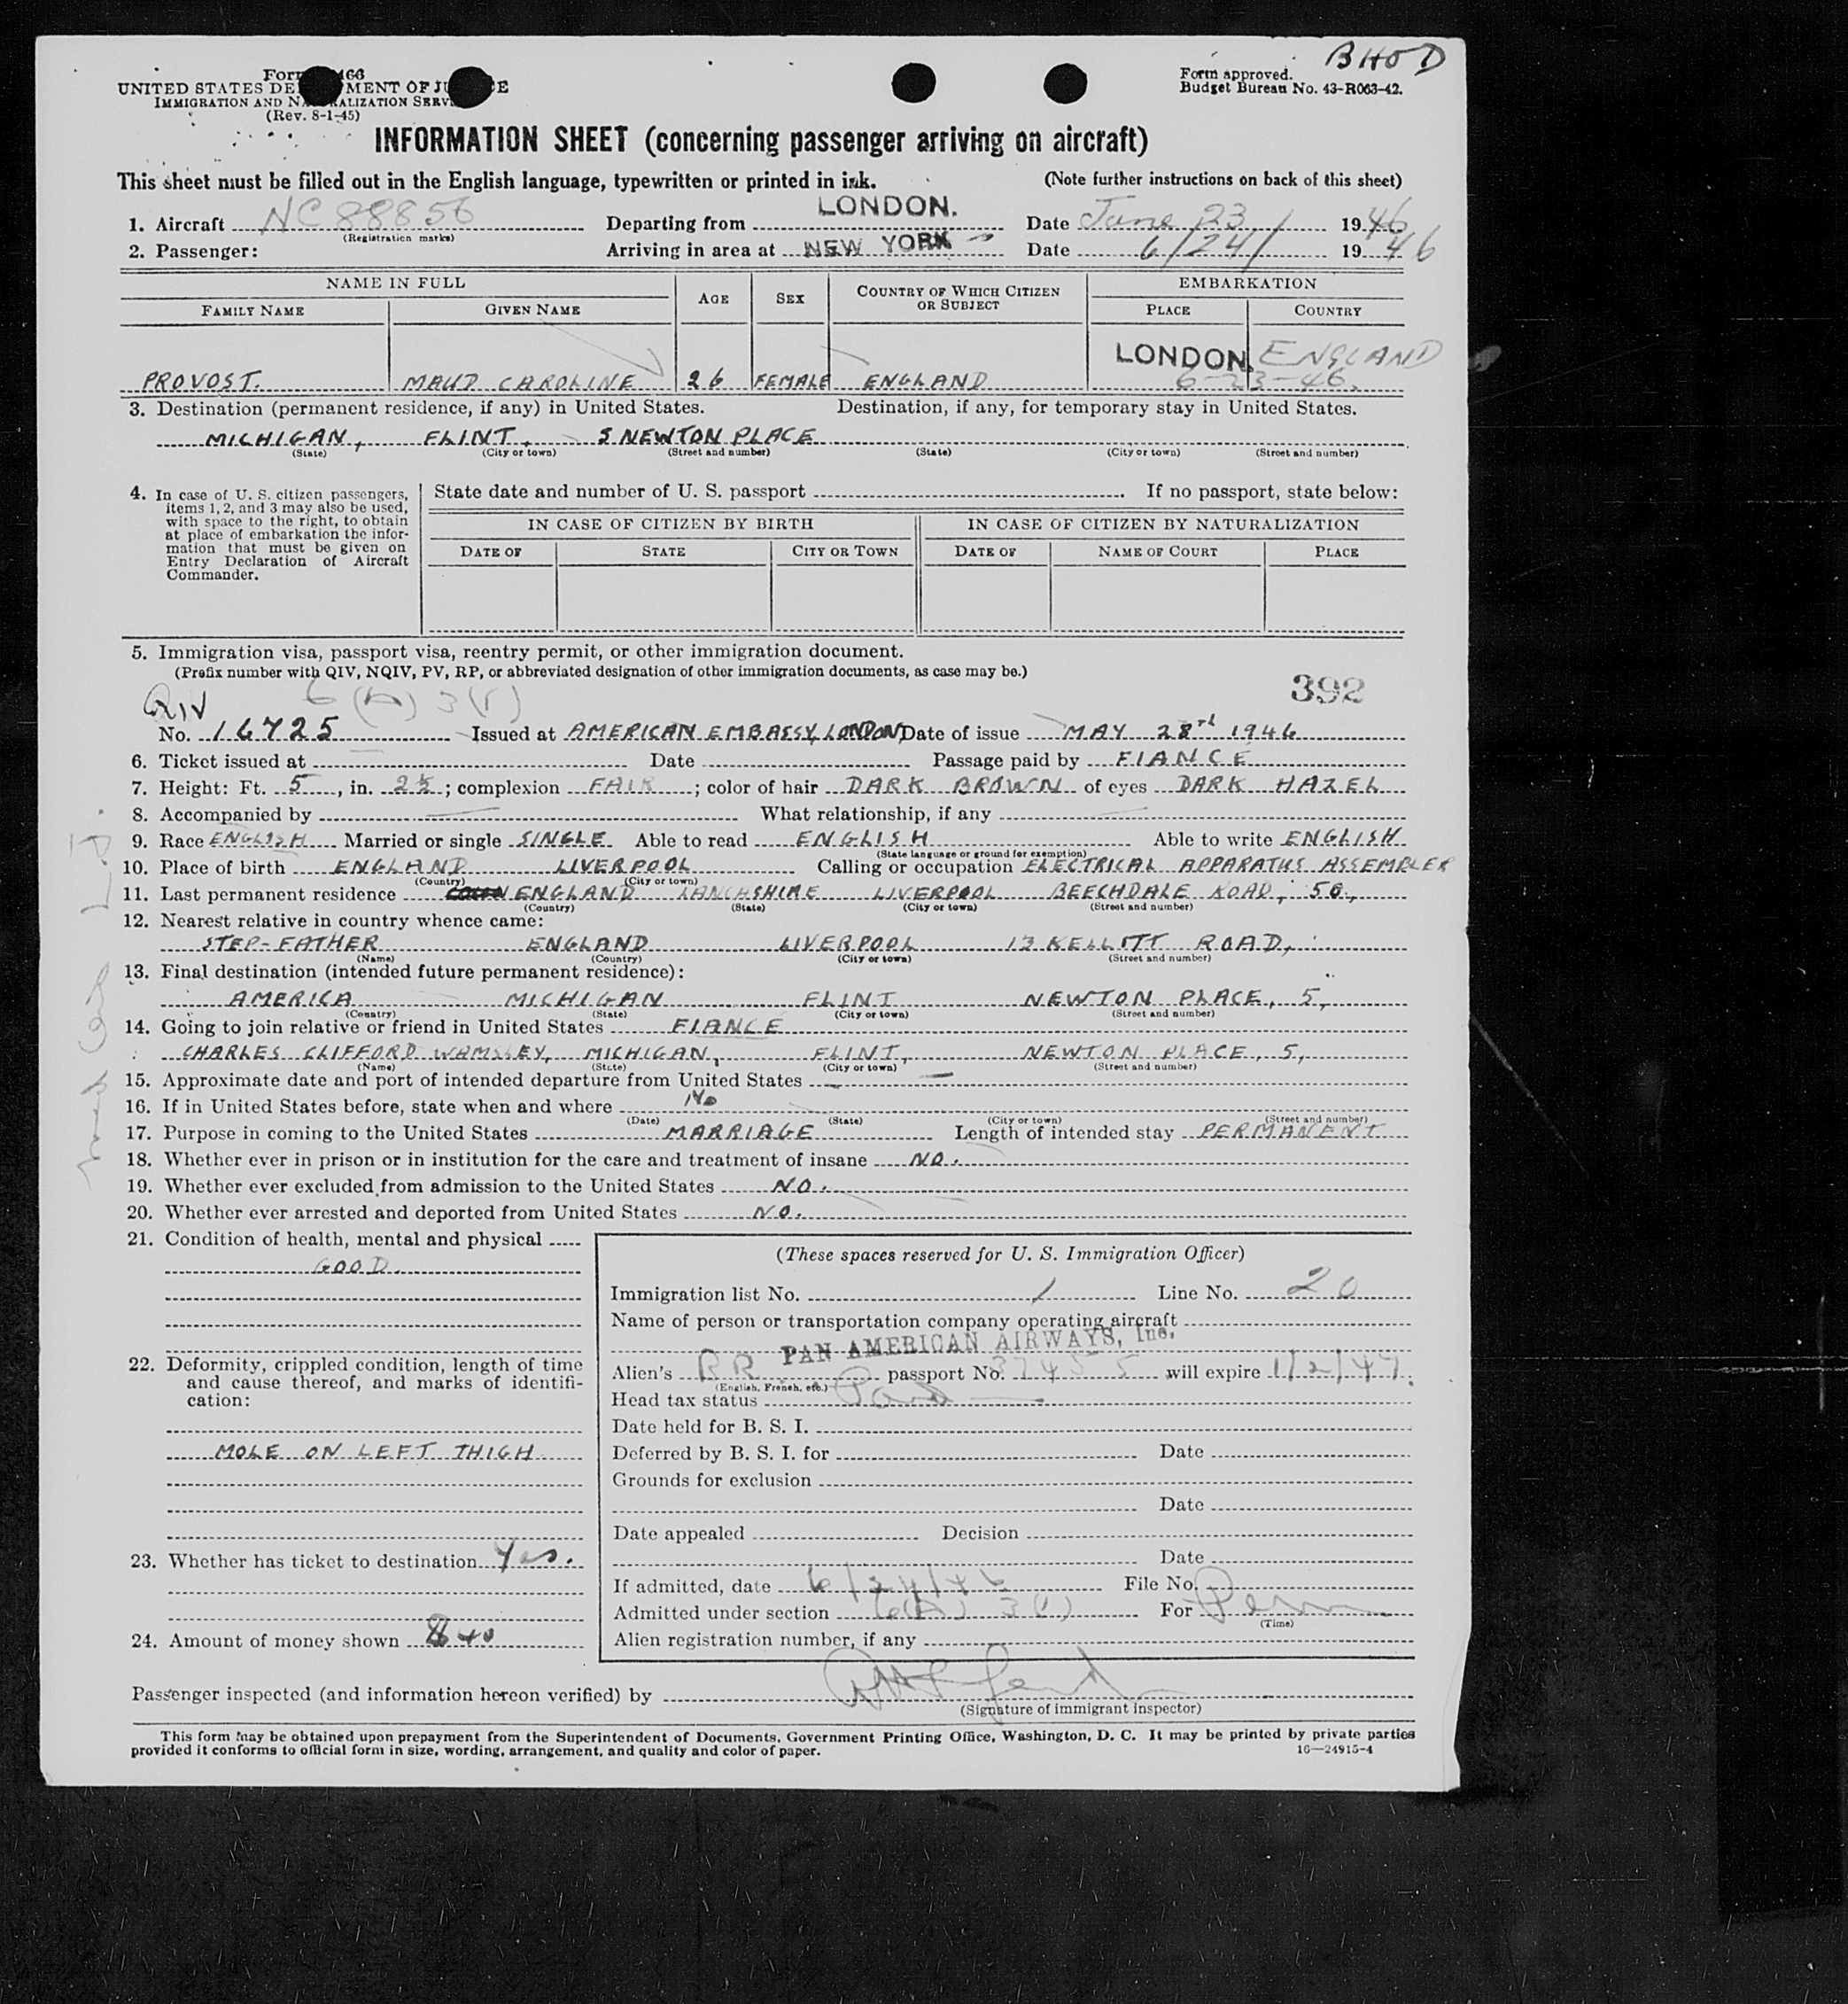 BHOD
Form 466
UNITED STATES DEPARTMENT OF JUSTICE
IMMIGRATION AND NATURALIZATION SERVICE
(Rev. 8-1-45)
Form approved.
Budget Bureau No. 43-R063-42.
INFORMATION SHEET (concerning passenger arriving on aircraft)
This sheet must be filled out in the English language, typewritten or printed in ink. (Note further instructions on back of this sheet)
1. Aircraft NC 88856 Departing from LONDON. Date June 23 1946
(Registration marks)
2. Passenger: Arriving in area at NEW YORK Date 6/24/ 1946
NAME IN FULL AGE SEX COUNTRY OF WHICH CITIZEN OR SUBJECT EMBARKATION
FAMILY NAME GIVEN NAME PLACE COUNTRY
LONDON. ENGLAND
PROVOST. MAUD CAROLINE 26 FEMALE ENGLAND 6-23-46.
3. Destination (permanent residence, if any) in United States. Destination, if any, for temporary stay in United States.
MICHIGAN, FLINT, 5 NEWTON PLACE
(State) (City or town) (Street and number) (State) (City or town) (Street and number)
4. In case of U. S. citizen passengers, items 1, 2, and 3 may also be used, with space to the right, to obtain at place of embarkation the information that must be given on Entry Declaration of Aircraft Commander.
State date and number of U. S. passport . If no passport, state below:
IN CASE OF CITIZEN BY BIRTH IN CASE OF CITIZEN BY NATURALIZATION
DATE OF STATE CITY OR TOWN DATE OF NAME OF COURT PLACE
5. Immigration visa, passport visa, reentry permit, or other immigration document.
(Prefix number with QIV, NQIV, PV, RP, or abbreviated designation of other immigration documents, as case may be.)
392
QIV 6 (A) 3(1)
No. 16725 Issued at AMERICAN EMBASSY, LONDON, Date of issue MAY 28th 1946
6. Ticket issued at Date Passage paid by FIANCE
7. Height: Ft. 5, in. 2½; complexion FAIR; color of hair DARK BROWN of eyes DARK HAZEL
8. Accompanied by What relationship, if any
9. Race ENGLISH Married or single SINGLE Able to read ENGLISH Able to write ENGLISH
(State language or ground for exemption)
10. Place of birth ENGLAND LIVERPOOL Calling or occupation ELECTRICAL APPARATUS ASSEMBLER
(Country) (City or town)
11. Last permanent residence ENGLAND LANCASHIRE LIVERPOOL BEECHDALE ROAD, 50,
(Country) (State) (City or town) (Street and number)
12. Nearest relative in country whence came:
STEP-FATHER ENGLAND LIVERPOOL 13 KELLITT ROAD,
(Name) (Country) (City or town) (Street and number)
13. Final destination (intended future permanent residence):
AMERICA MICHIGAN FLINT NEWTON PLACE, 5,
(Country) (State) (City or town) (Street and number)
14. Going to join relative or friend in United States FIANCE
CHARLES CLIFFORD WAMSLEY, MICHIGAN, FLINT, NEWTON PLACE, 5,
(Name) (State) (City or town) (Street and number)
15. Approximate date and port of intended departure from United States
16. If in United States before, state when and where No
(Date) (State) (City or town) (Street and number)
17. Purpose in coming to the United States MARRIAGE Length of intended stay PERMANENT
18. Whether ever in prison or in institution for the care and treatment of insane NO.
19. Whether ever excluded from admission to the United States NO.
20. Whether ever arrested and deported from United States NO.
21. Condition of health, mental and physical
GOOD.
22. Deformity, crippled condition, length of time and cause thereof, and marks of identification:
MOLE ON LEFT THIGH
23. Whether has ticket to destination Yes.
24. Amount of money shown $40
(These spaces reserved for U. S. Immigration Officer)
Immigration list No. 1 Line No. 20
Name of person or transportation company operating aircraft
PAN AMERICAN AIRWAYS, Inc.
Alien's BR passport No. 37455 will expire 1/2/47.
(English, French, etc.)
Head tax status Paid
Date held for B. S. I.
Deferred by B. S. I. for Date
Grounds for exclusion
Date
Date appealed Decision
Date
If admitted, date 6/24/46 File No.
Admitted under section 6(A) 3(1) For Perm
(Time)
Alien registration number, if any
Passenger inspected (and information hereon verified) by
(Signature of immigrant inspector)
This form may be obtained upon prepayment from the Superintendent of Documents, Government Printing Office, Washington, D. C. It may be printed by private parties
provided it conforms to official form in size, wording, arrangement, and quality and color of paper. 16—24915-4